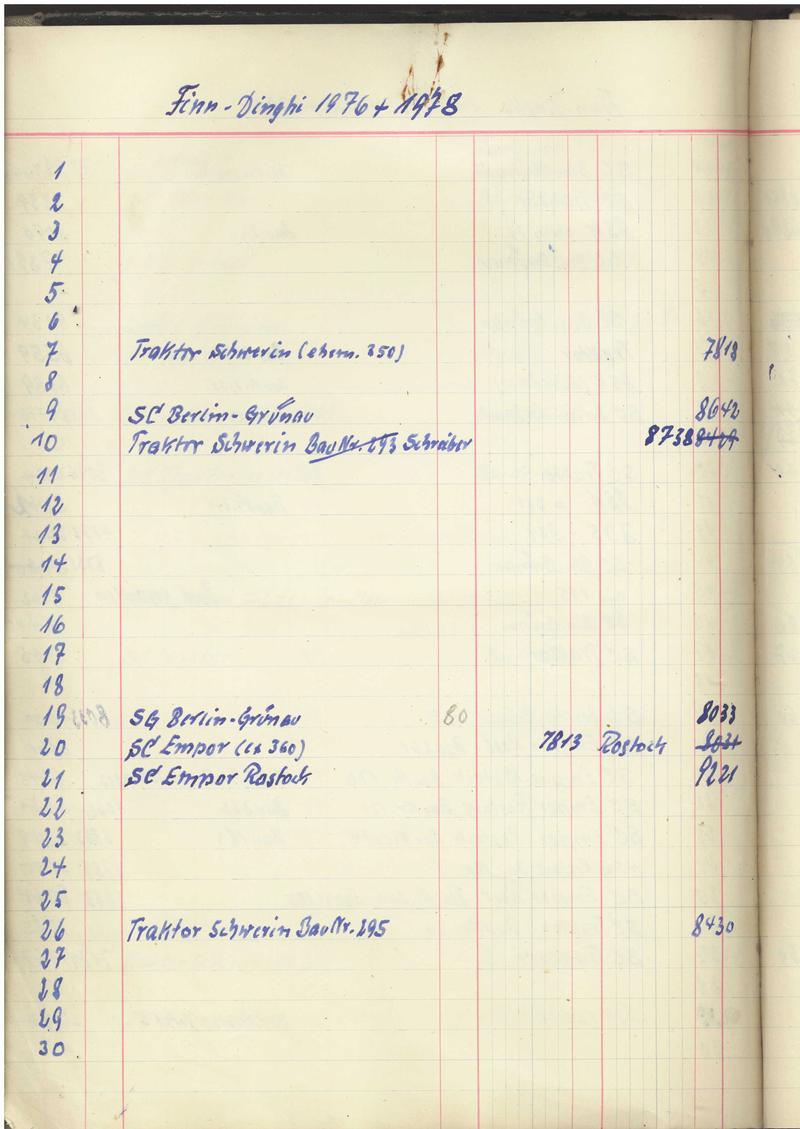 Finn-Dinghi 1976 + 1978
1
2
3
4
5
6
7 Traktor Schwerin (ehem. 250) 7818
8
9 SC Berlin-Grünau 8642
10 Traktor Schwerin Bau Nr. 293 Schreiber 8738 8429
11
12
13
14
15
16
17
18
19 SG Berlin-Grünau 80 8033
20 SC Empor (ex 360) 7813 Rostock 8031
21 SC Empor Rostock 9221
22
23
24
25
26 Traktor Schwerin Bau Nr. 295 8430
27
28
29
30